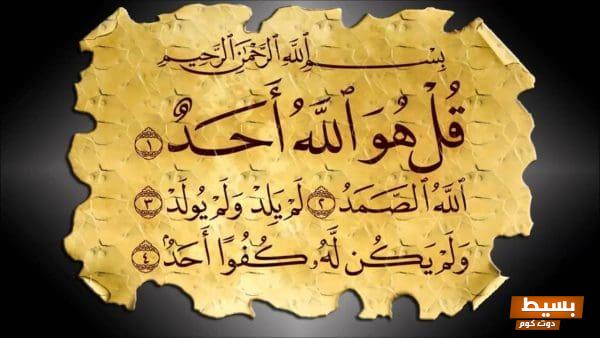 بِسْمِ ٱللَّهِ ٱلرَّحْمَٰنِ ٱلرَّحِيمِ
قُلْ هُوَ ٱللَّهُ أَحَدٌ ١
ٱللَّهُ ٱلصَّمَدُ ٢ لَمْ يَلِدْ وَلَمْ يُولَدْ ٣
وَلَمْ يَكُن لَّهُۥ كُفُوًا أَحَدٌۢ ٤
بسيط
دوت كوم